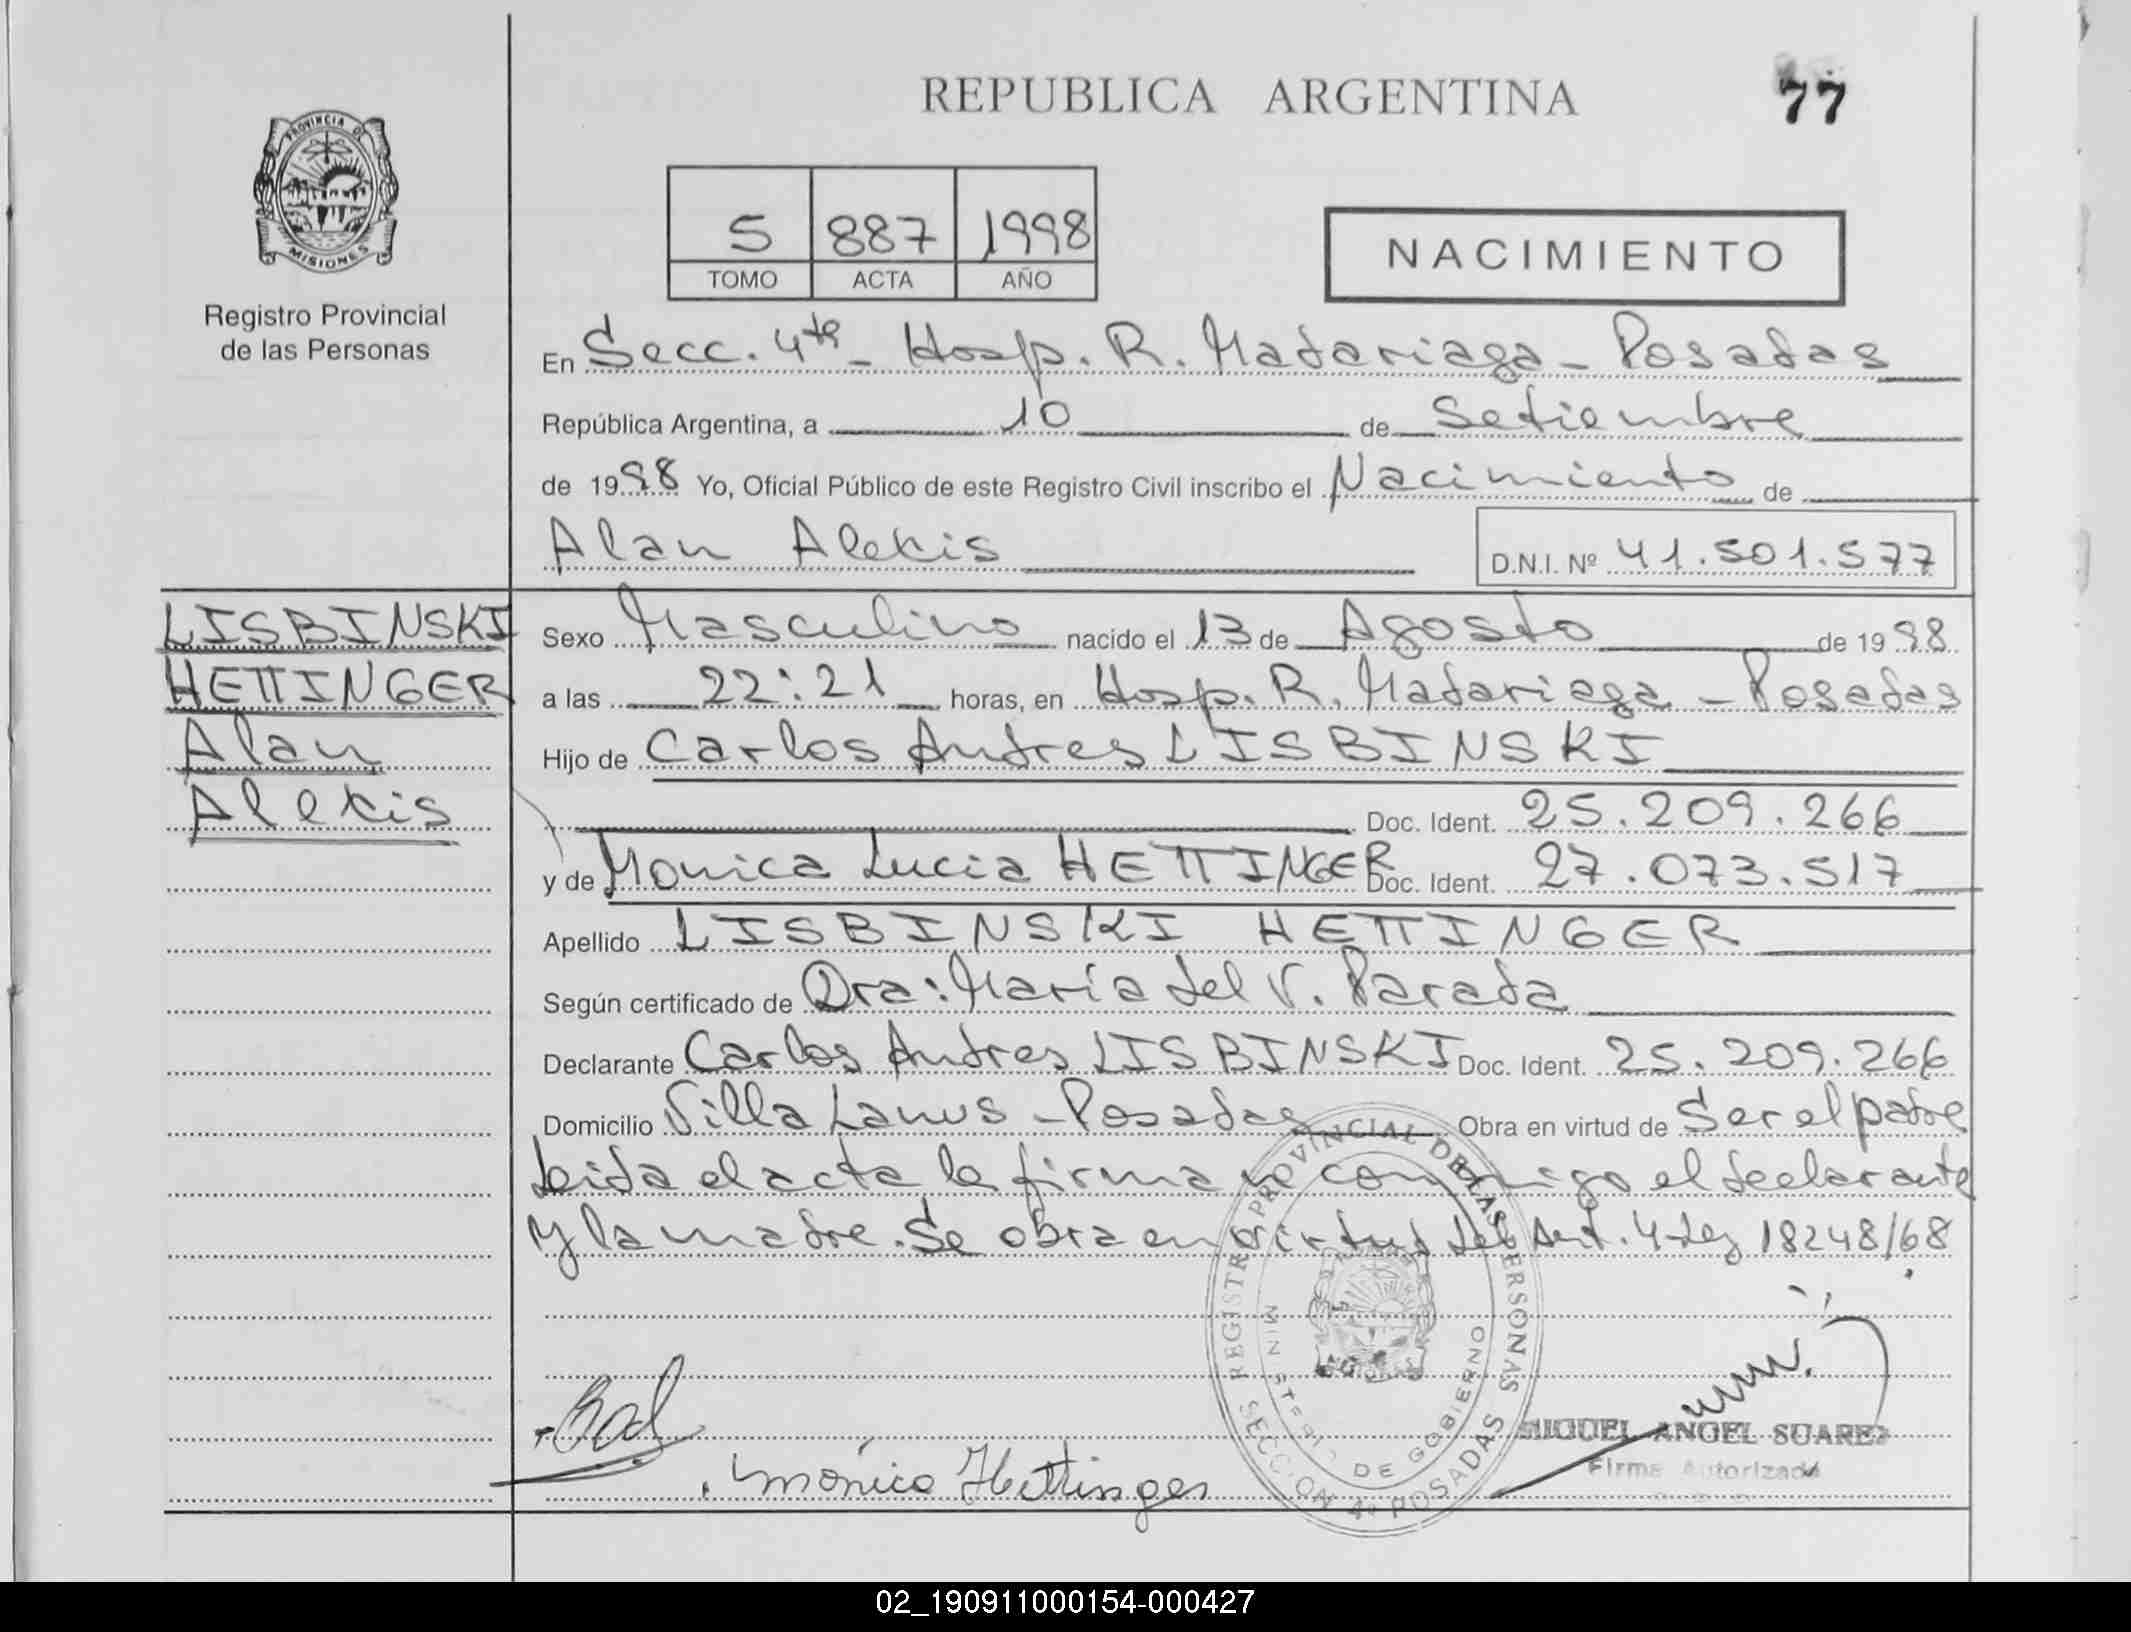 REPUBLICA ARGENTINA
77
PROVINCIA DE
MISIONES
Registro Provincial
de las Personas
5 887 1998
TOMO ACTA AÑO
NACIMIENTO
En Secc. 4ta - Hosp. R. Madariaga - Posadas
República Argentina, a 10 de Setiembre
de 1998 Yo, Oficial Público de este Registro Civil inscribo el Nacimiento de
Alan Alexis
D.N.I. Nº 41.501.577
LISBINSKI
HETTINGER
Alan
Alexis
Sexo Masculino nacido el 13 de Agosto de 1998
a las 22:21 horas, en Hosp. R. Madariaga - Posadas
Hijo de Carlos Andres LISBINSKI
Doc. Ident. 25.209.266
y de Monica Lucia HETTINGER Doc. Ident. 27.073.517
Apellido LISBINSKI HETTINGER
Según certificado de Dra: María del V. Parada
Declarante Carlos Andres LISBINSKI Doc. Ident. 25.209.266
Domicilio Villa Lanus - Posadas Obra en virtud de Ser el padre
Leida el acta la firma conmigo el declarante
y la madre. Se obra en virtud del Art. 4 Ley 18248/68
REGISTRO PROVINCIAL DE LAS PERSONAS
MINISTERIO DE GOBIERNO
SECCION 4º POSADAS
MIGUEL ANGEL SUAREZ
Firma Autorizada
Mónica Hettinger
02_190911000154-000427